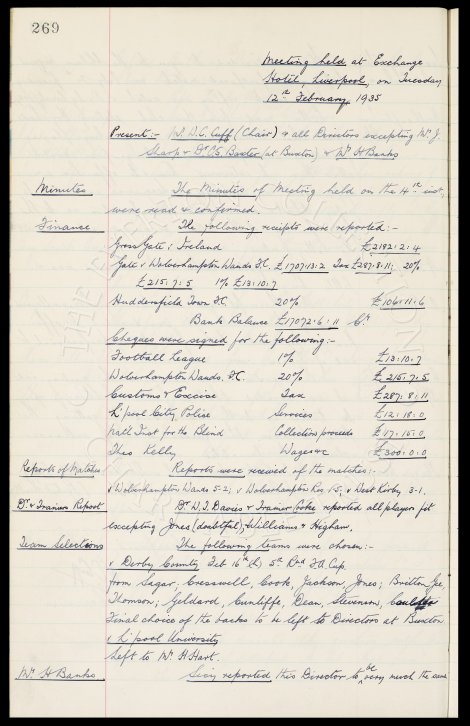 269
Meeting held at Exchange
Hotel, Liverpool, on Tuesday
12th February, 1935
Present:- Mr. W.C. Cuff (Chair) & all Directors excepting Mr. J.
Sharp & Dr. C.S. Baxter (at Buxton) & Mr. H Banks
Minutes The Minutes of Meeting held on the 4th inst,
were read & confirmed.
Finance The following receipts were reported:-
Gross Gate; Ireland £2182:2:4
Gate; Wolverhampton Wands FC, £1707:13:2 Tax £287:8:11; 20%
£215:7:5 1% £13:10:7
Huddersfield Town FC 20% £106:11:6
Bank Balance £17072:6:11 Cr
Cheques were signed for the following:-
Football League 1% £13:10:7
Wolverhampton Wands. F.C. 20% £215:7:5
Customs & Excise Tax £287:8:11
L'pool City Police Services £12:18:0
Natl Inst for the Blind Collection proceeds £17:15:0
Theo Kelly Wages &c £300:0:0
Reports of Matches Reports were received of the matches:-
v Wolverhampton Wands 5-2; v Wolverhampton Res 1-5; v West Kirby 3-1.
Dr. & Trainers Report Dr. D.I. Davies & Trainer Cooke reported all players fit
excepting Jones (doubtful), Williams & Higham.
Team Selections The following teams were chosen:-
v Derby County Feb 16th (h) 5th Rnd FA Cup
from Sagar. Cresswell, Cook, Jackson, Jones; Britton, Gee
Thomson; Geldard, Cunliffe, Dean, Stevenson, Coulter
Final choice of the backs to be left to Directors at Buxton.
v L'pool University
Left to Mr. A Hart.
Mr. H Banks Secy reported this Director to be very much the same